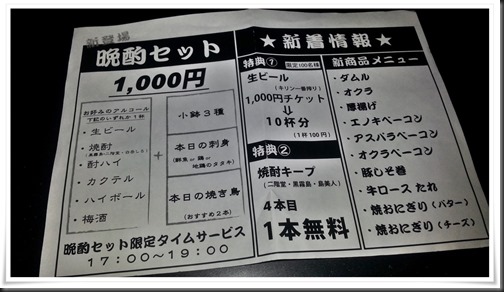 新登場
晩酌セット
1,000円
お好みのアルコール
下記のいずれか1杯
・生ビール
・焼酎
・酎ハイ
・カクテル
・ハイボール
・梅酒
+
小鉢3種
本日の刺身
(鮮魚 or 鶏 or
地鶏のタタキ)
本日の焼き鳥
(おすすめ2本)
晩酌セット限定タイムサービス
17:00~19:00
★ 新着情報 ★
特典① 限定100名様
生ビール
(キリン一番搾り)
1,000円チケット
⇓
10杯分
(1杯100円)
特典②
焼酎キープ
(二階堂・黒霧島・島美人)
4本目
1本無料
新商品メニュー
・ダムル
・オクラ
・厚揚げ
・エノキベーコン
・アスパラベーコン
・オクラベーコン
・豚しそ巻
・牛ロース たれ
・焼おにぎり(バター)
・焼おにぎり(チーズ)